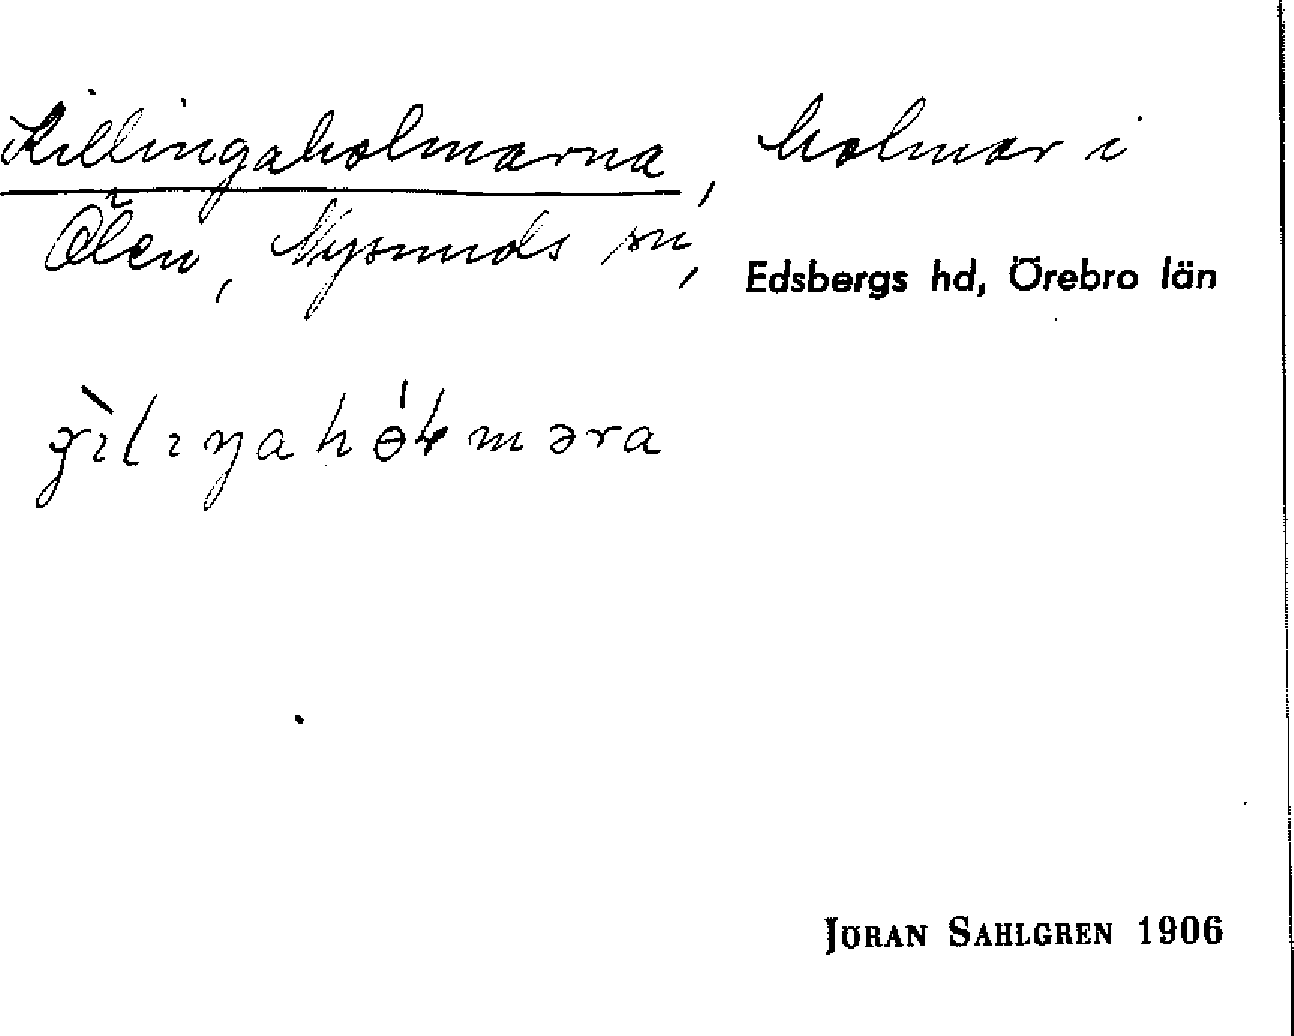 Killingaholmarna, holmar i
Ölen, Nysunds sn, Edsbergs hd, Örebro län
JÖRAN SAHLGREN 1906